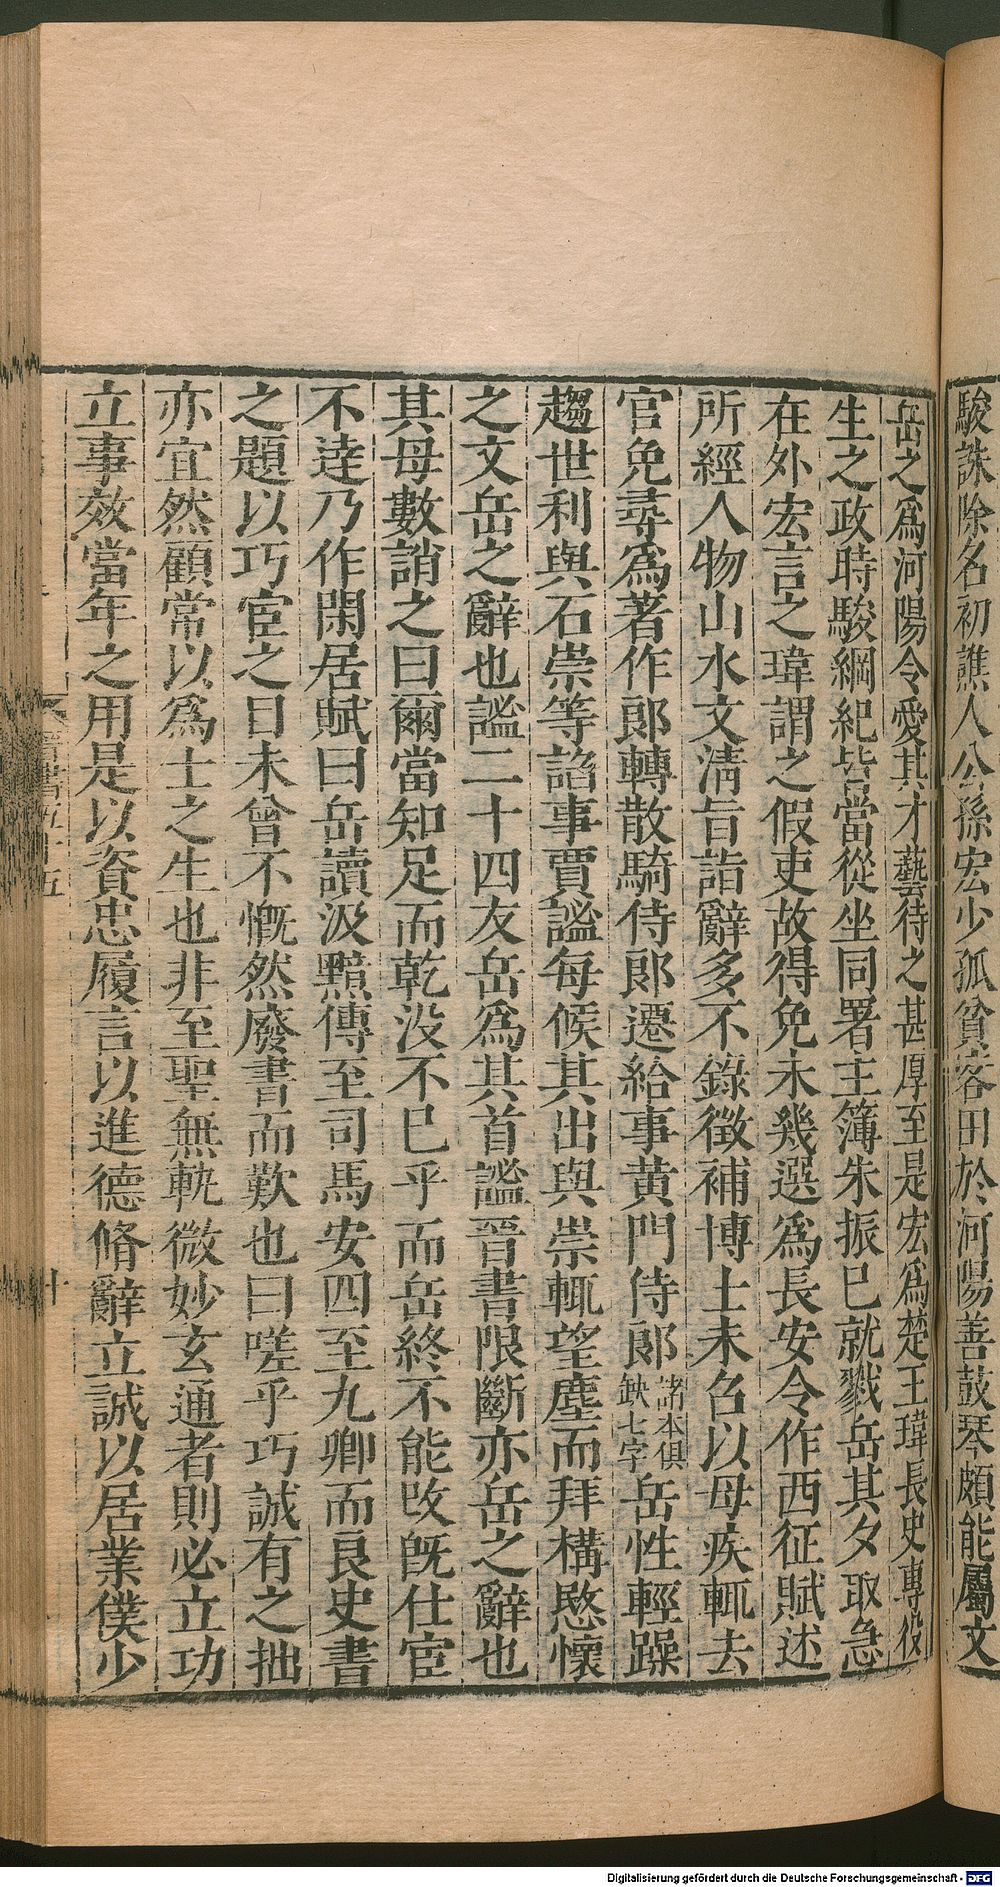 駿誅除名初譙人公孫宏少孤貧客田於河陽善鼓琴頗能屬文
岳之爲河陽令愛其才藝待之甚厚至是宏爲楚王瑋長史專役
生之政時駿綱紀皆當從坐同署主簿朱振已就戮岳其夕取急
在外宏言之瑋謂之假吏故得免未幾選爲長安令作西征賦述
所經人物山水文淸旨詣辭多不錄徴補博士未召以母疾輒去
官免尋爲著作郞轉散騎侍郞遷給事黄門侍郞諸本俱缺七字岳性輕躁
趨世利與石崇等諂事賈謐每候其出與崇輒望塵而拜構愍懷
之文岳之辭也謐二十四友岳爲其首謐晉書限斷亦岳之辭也
其母數誚之曰爾當知足而乾没不已乎而岳終不能改旣仕宦
不逹乃作閑居賦曰岳讀汲黯傳至司馬安四至九卿而良史書
之題以巧宦之目未曾不慨然廢書而歎也曰嗟乎巧誠有之拙
亦宜然顧常以爲士之生也非至聖無軌微妙玄通者則必立功
立事效當年之用是以資忠履言以進德脩辭立誠以居業僕少
晉書五十五
十
Digitalisierung gefördert durch die Deutsche Forschungsgemeinschaft - DFG